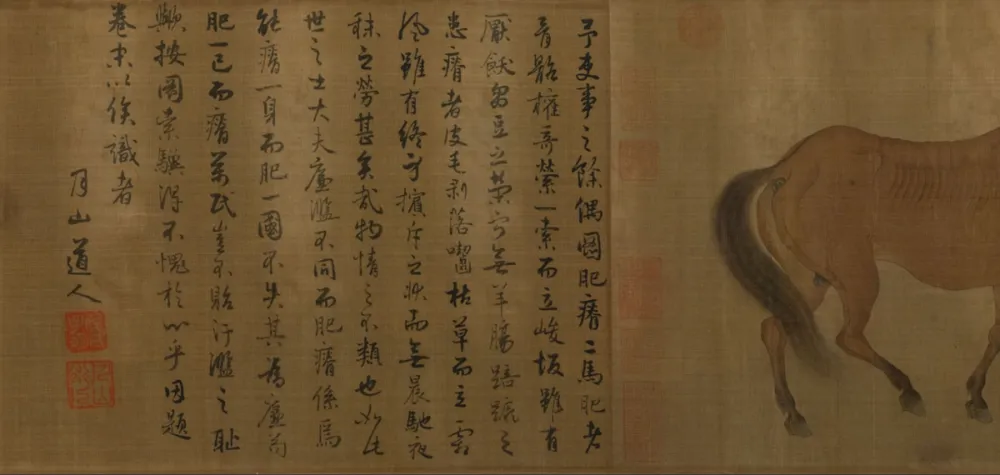 予吏事之餘偶圖肥瘠二馬肥者
骨骼權奇縈一索而立峻坂雖有
厭飫芻豆之榮寧無羊腸踣蹶之
患瘠者皮毛剥落囓枯草而立霜
風雖有終身擯斥之狀而無晨馳夜
秣之勞甚矣哉物情之不類也如此
世之士大夫廉濫不同而肥瘠係焉
能瘠一身而肥一國不失其為廉苟
肥一己而瘠萬民豈不貽汙濫之恥
歟按圖索驥得不愧於心乎因題
卷末以俟識者
月山道人